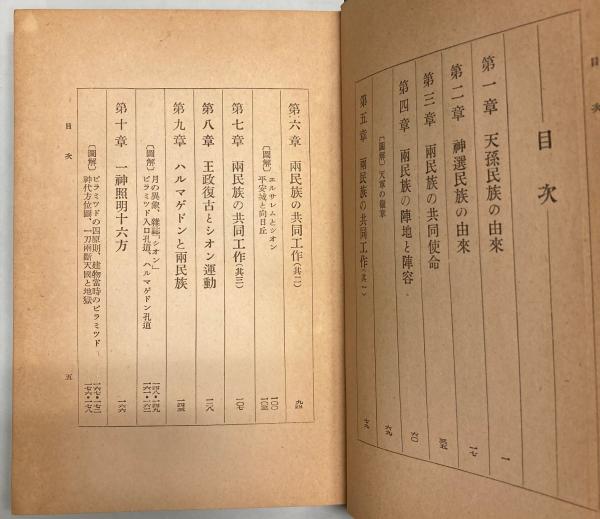 目次
目次
第一章 天孫民族の由來 一
第二章 神選民族の由來 一七
第三章 兩民族の共同使命 三五
第四章 兩民族の陣地と陣容 六〇
〔圖解〕天軍の徽章 六九
第五章 兩民族の共同工作(其一) 七九
第六章 兩民族の共同工作(其二) 九四
〔圖解〕エルサレムとシオン 一〇〇
平安城と向日丘 一〇三
第七章 兩民族の共同工作(其三) 一〇七
第八章 王政復古とシオン運動 一二八
第九章 ハルマゲドンと兩民族 一四五
〔圖解〕月の異象、雜誌「シオン」 一四八・一四九
ピラミツド入口孔道、ハルマゲドン孔道 一六一・一六二
第十章 一神照明十六方 一六六
〔圖解〕ピラミツドの四原則、建物當時のピラミツド 一六七・一七二
神代方位圖、一刀兩斷天國と地獄 一七六・一七八
目次
五